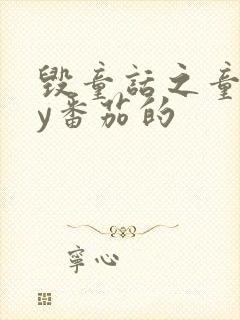 毁童话之童
y番茄的
寧心